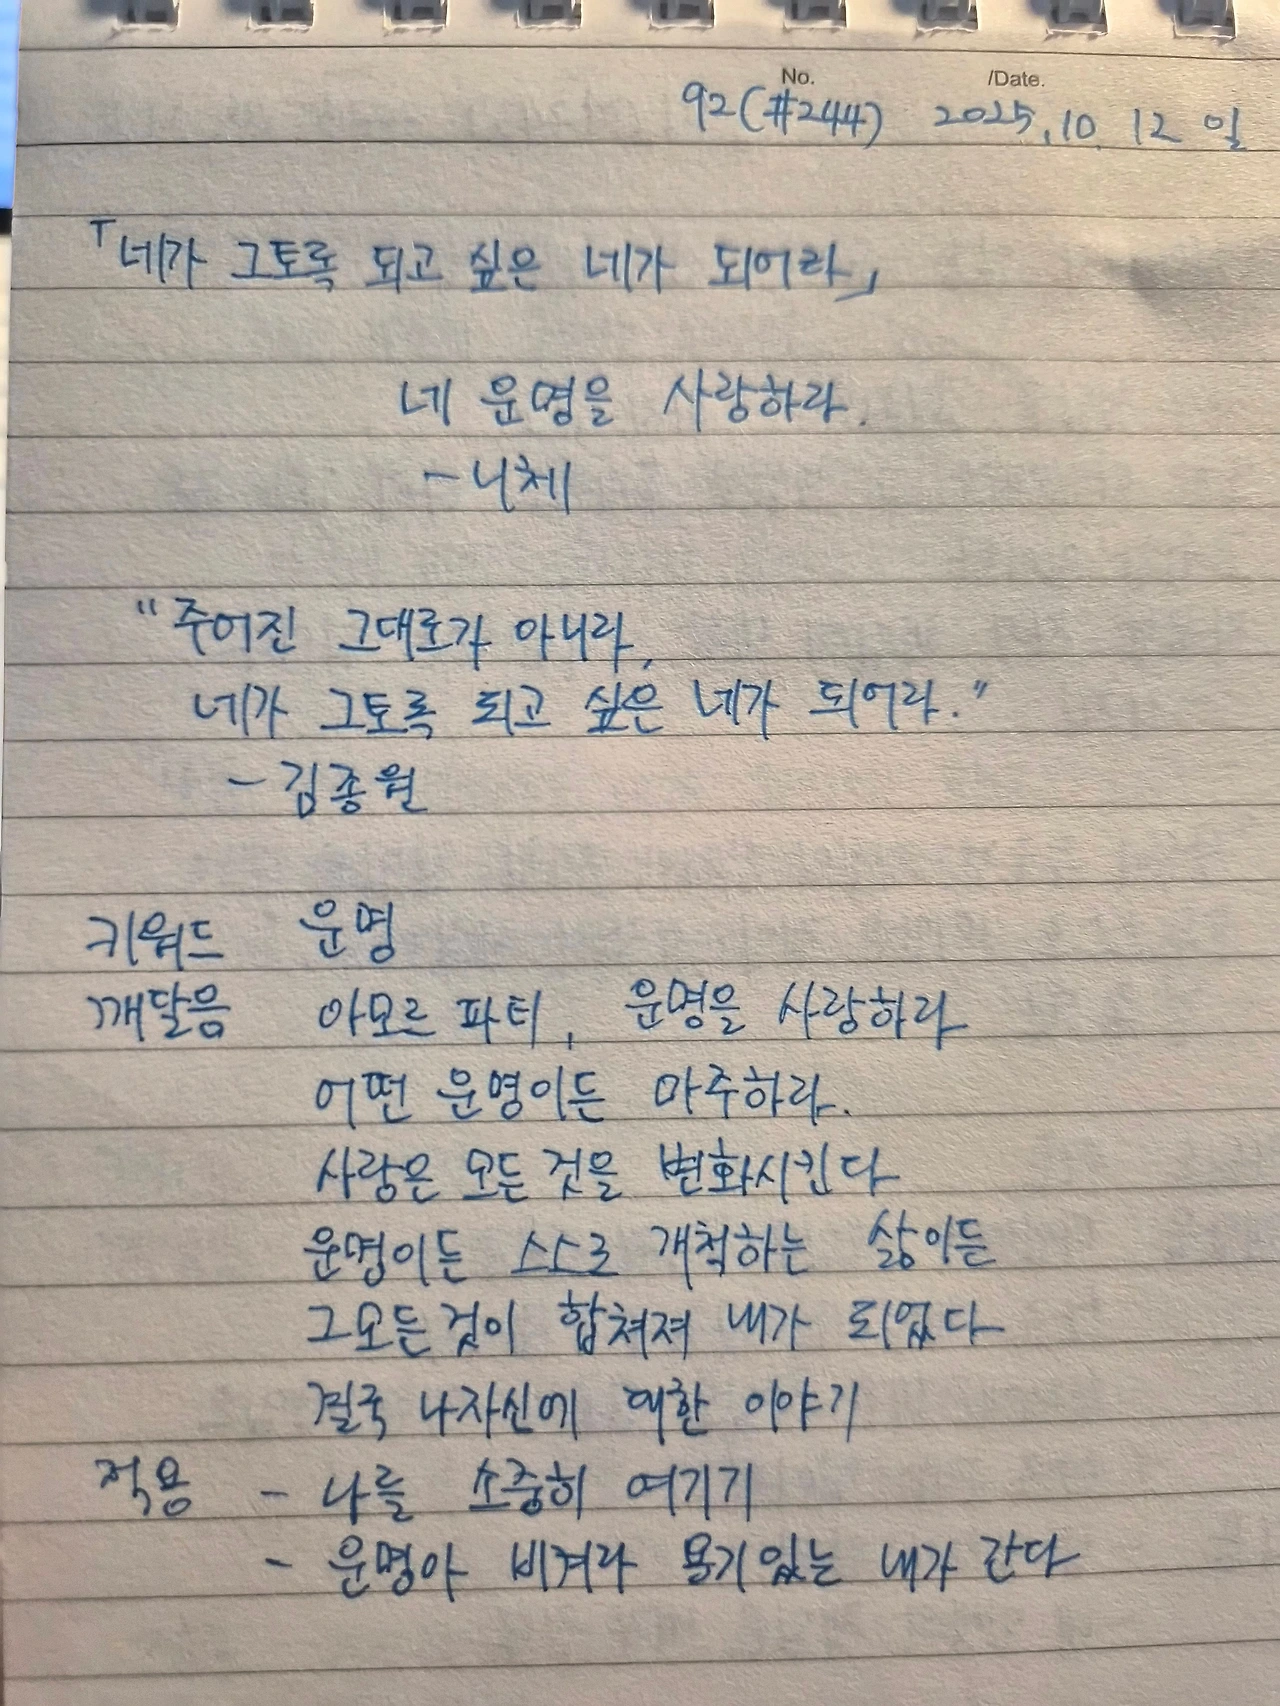 No. /Date.
92(#244) 2025.10.12 일
「네가 그토록 되고 싶은 네가 되어라」
네 운명을 사랑하라.
- 니체
"주어진 그대로가 아니라,
네가 그토록 되고 싶은 네가 되어라."
- 김종원
키워드 운명
깨달음 아모르 파티, 운명을 사랑하라
어떤 운명이든 마주하라.
사랑은 모든 것을 변화시킨다
운명이든 스스로 개척하는 삶이든
그 모든 것이 합쳐져 내가 되었다
결국 나 자신에 대한 이야기
적용 - 나를 소중히 여기기
- 운명아 비켜라 용기있는 내가 간다